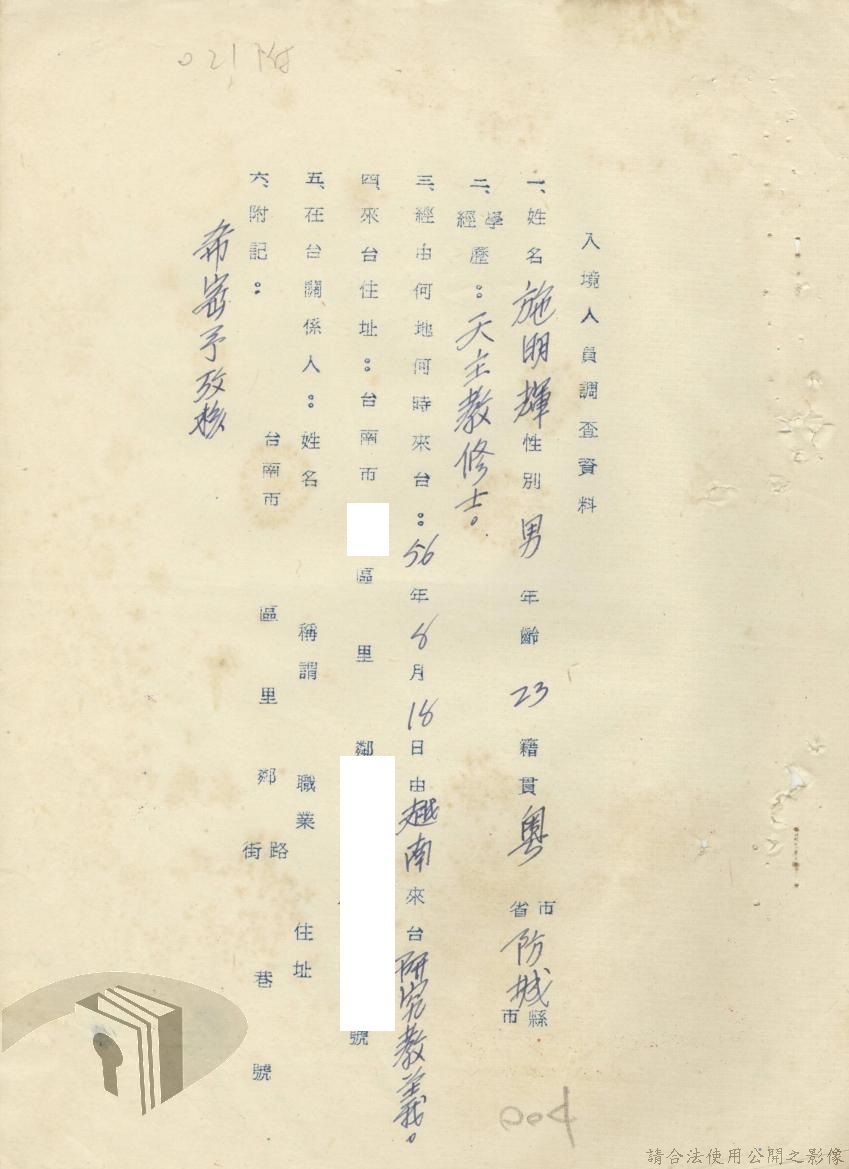 入境人員調查資料
一、姓名施明輝性別男年齡23籍貫粵省市防城市縣
二、學經歷：天主教修士。
三、經由何地何時來台：56年8月18日由越南來台研究教義。
四、來台住址：台南市區里鄰號
五、在台關係人：姓名稱謂職業住址
台南市區里鄰街路巷號
六、附記：
希密予攷核
004
請合法使用公開之影像